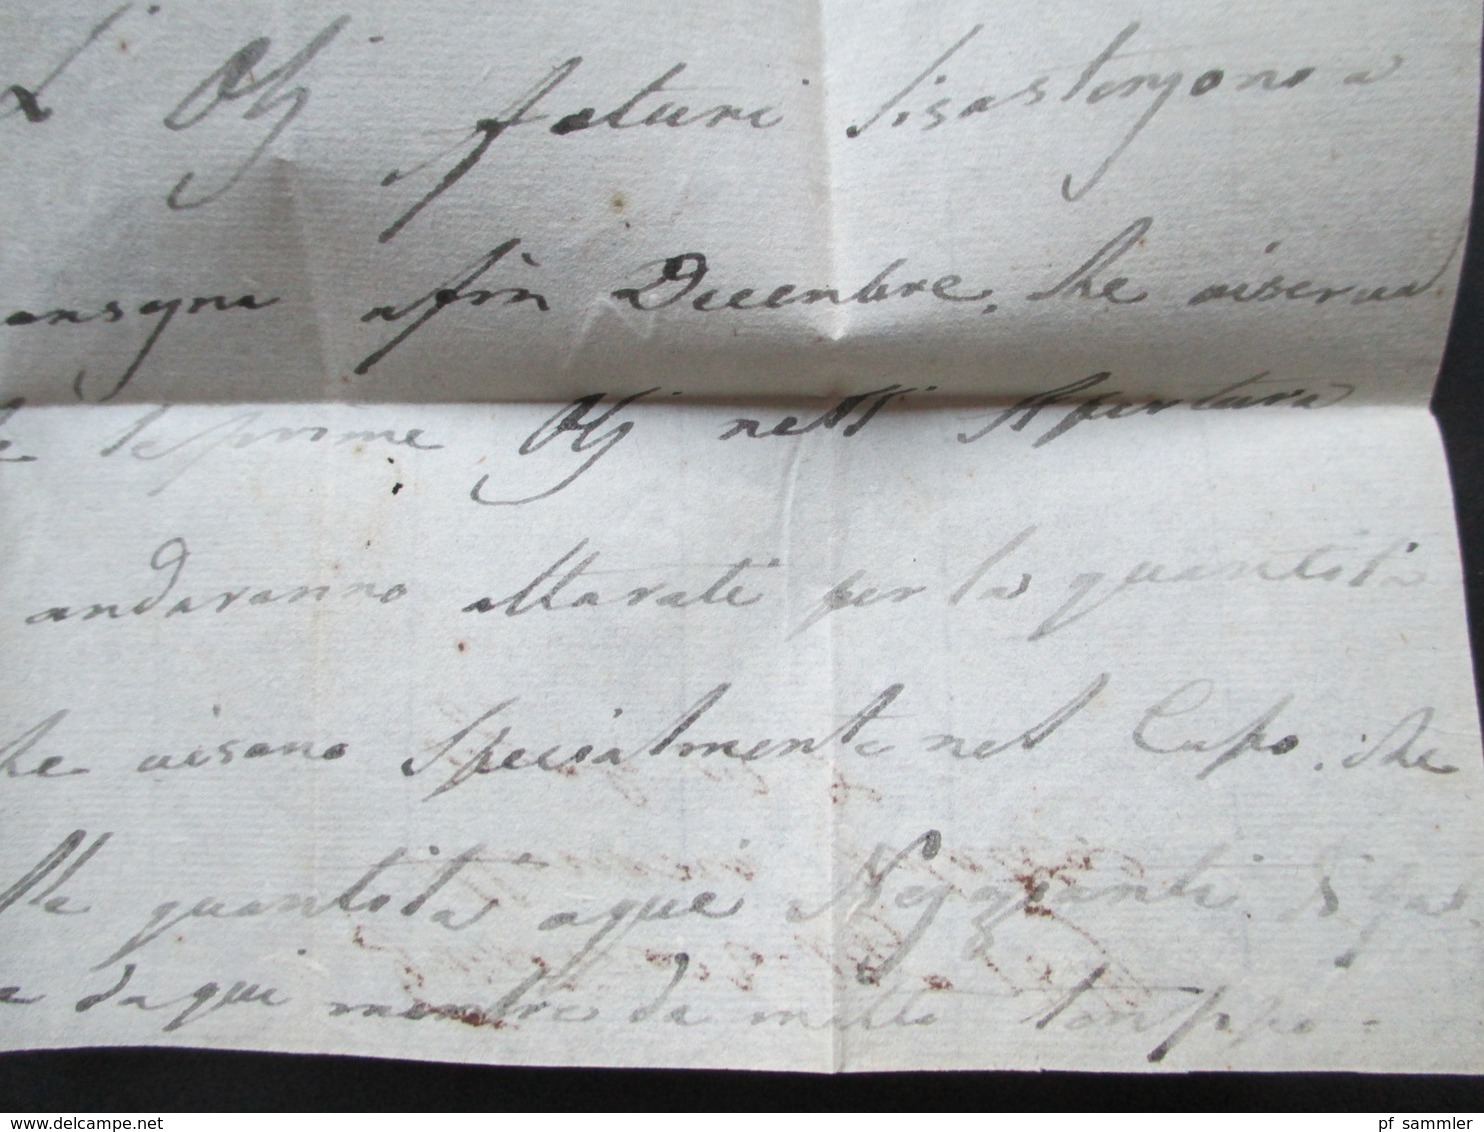 L' Olj futuri si sostengono a
consegna a fin Decembre, che vi serva
le prime Olj nell' Apertura
andaranno alterati per la quantità
che vi sono specialmente nel Capo, che
alla quantità a que Negozianti di
e da qui mentre da molto tempo.
pf_sammler